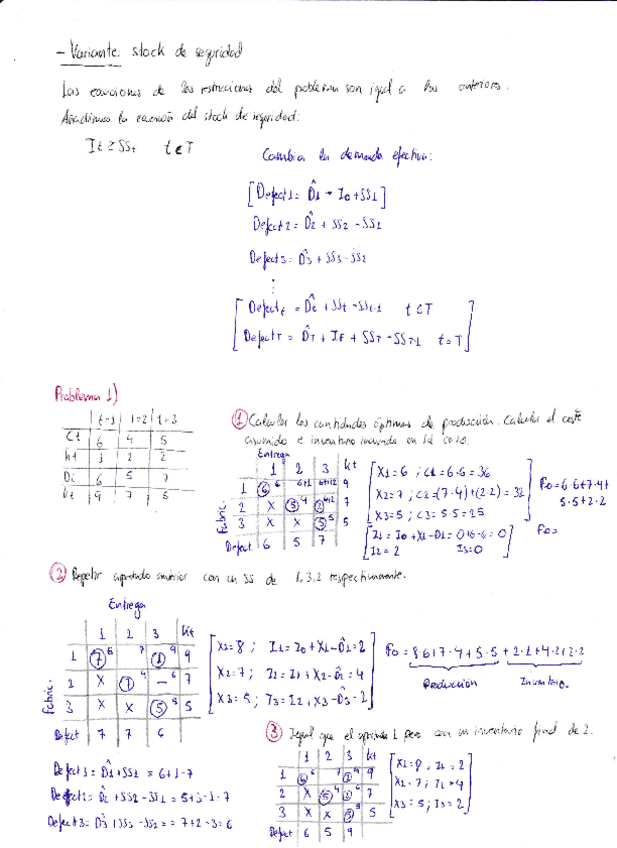 - Variante: stock de seguridad
Las ecuaciones de las restricciones del problema son igual a las anteriores.
Añadimos la ecuación del stock de seguridad:
It ≥ SSt t ∈ T
Cambia la demanda efectiva:
[Defect1 = D̂1 - I0 + SS1]
Defect2 = D̂2 + SS2 - SS1
Defect3 = D̂3 + SS3 - SS2
⋮
Defect t = D̂t + SSt - SSt-1 t ∈ T
Defect T = D̂T + IF + SST - SST-1 t = T
Problema 1)
t=1 t=2 t=3
Ct 6 4 5
ht 1 2 2
Dt 6 5 7
kt 9 7 5
① Calcular las cantidades óptimas de producción. Calcular el coste
asumido e inventario incurrido en cada caso.
Entrega
1 2 3 kt
1 6 6 6+1 6+1+2 9
2 X 5 4 2 4+2 7
3 X X 5 5 5
Defect 6 5 7
Fabric.
X1 = 6 ; C1 = 6·6 = 36
X2 = 7 ; C2 = (7·4)+(2·2) = 32
X3 = 5 ; C3 = 5·5 = 25
I1 = I0 + X1 - D1 = 0+6-6 = 0
I2 = 2 I3 = 0
Fo = 6·6+7·4+
5·5+2·2
Fo=
② Repetir apartado anterior con un SS de 1,3,2 respectivamente.
Entrega
1 2 3 kt
1 7 6 7 1 9 9
2 X 7 4 - 6 7
3 X X 5 5 5
Defect 7 7 6
Fabric.
X1 = 8 ; I1 = I0 + X1 - D̂1 = 2
X2 = 7 ; I2 = I1 + X2 - D̂2 = 4
X3 = 5 ; I3 = I2 + X3 - D̂3 = 2
Fo = 8·6+7·4+5·5+2·1+4·2+2·2
Producción Inventario.
Defect1 = D̂1 + SS1 = 6+1=7
Defect2 = D̂2 + SS2 - SS1 = 5+3-1=7
Defect3 = D̂3 + SS3 - SS2 = = 7+2-3=6
③ Igual que el apartado 1 pero con un inventario final de 2.
1 2 3 kt
1 6 6 7 2 9 9
2 X 5 4 2 6 7
3 X X 5 5 5
Defect 6 5 9
X1 = 8, I1 = 2
X2 = 7; I2 = 4
X3 = 5; I3 = 2